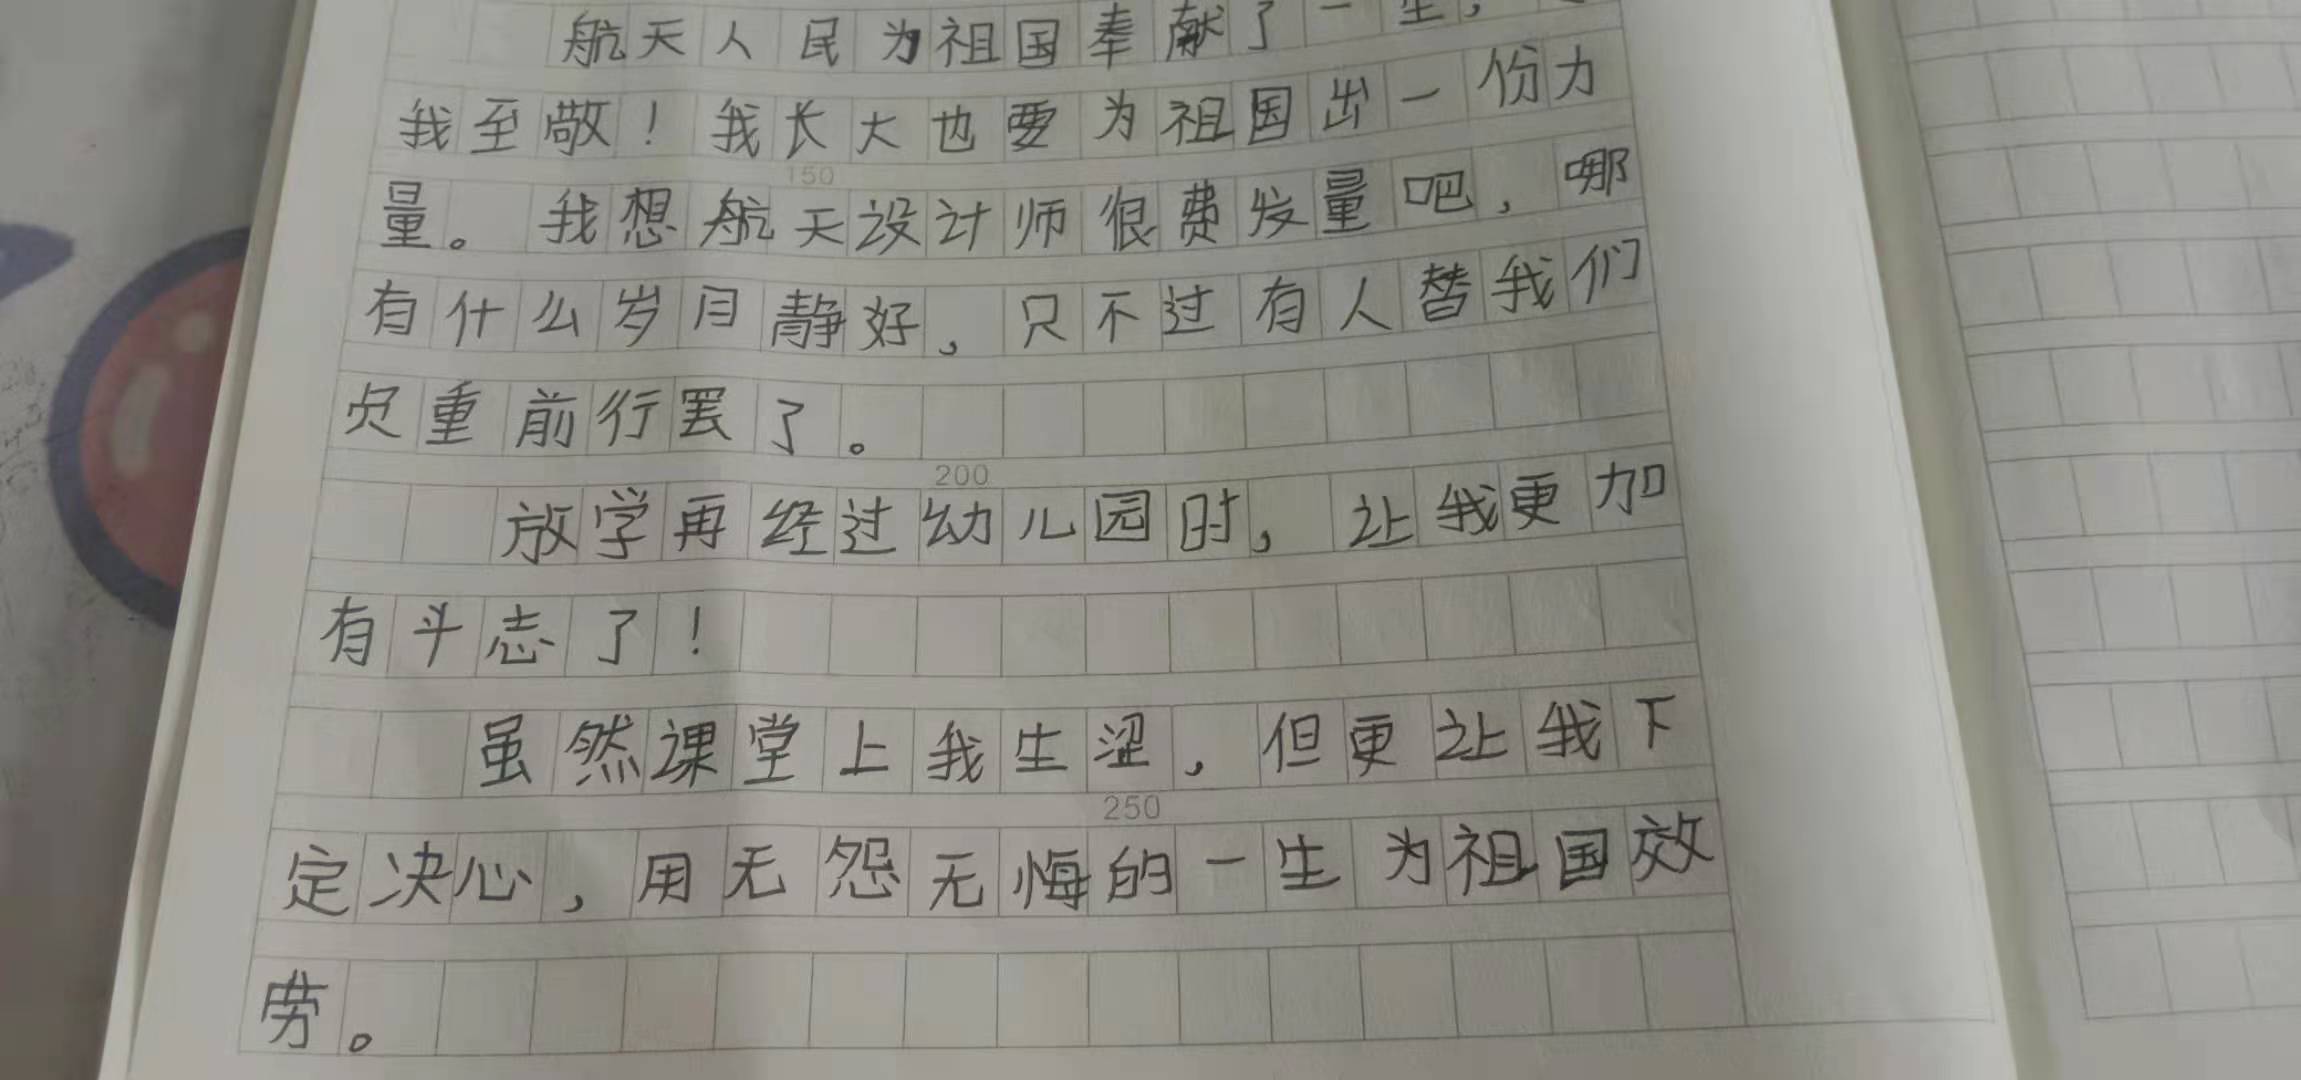 航天人民为祖国奉献了一生,
我至敬!我长大也要为祖国出一份力
150
量。我想航天设计师很费发量吧,哪
有什么岁月静好,只不过有人替我们
负重前行罢了。
200
放学再经过幼儿园时,让我更加
有斗志了!
虽然课堂上我生涩,但更让我下
250
定决心,用无怨无悔的一生为祖国效
劳。